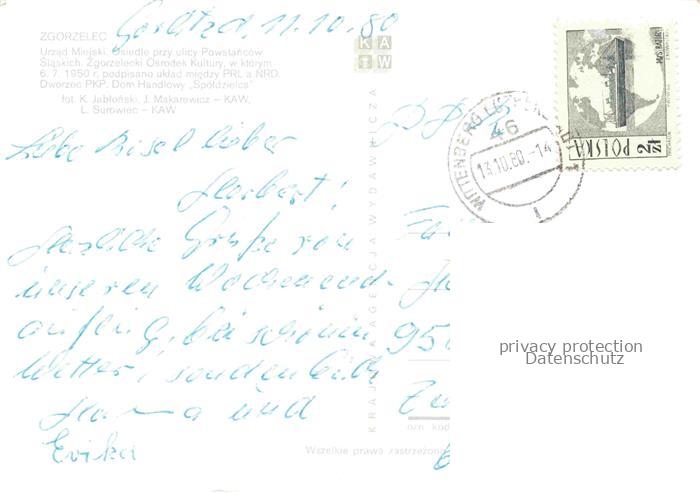 Görlitz d. 11.10.80
ZGORZELEC
Urząd Miejski. Osiedle przy ulicy Powstańców
Śląskich. Zgorzelecki Ośrodek Kultury, w którym
6. 7. 1950 r. podpisano układ między PRL a NRD.
Dworzec PKP. Dom Handlowy „Spółdzielca"
fot. K. Jabłoński, J. Makarewicz — KAW,
L. Surowiec — KAW
Liebe Gisel lieber
Norbert!
Herzliche Grüße von
unserem Wochenend-
ausflug, bei schönem
Wetter, senden Euch
Mama und
Erika
KAW
KRAJOWA AGENCJA WYDAWNICZA
Wszelkie prawa zastrzeżone
WITTENBERG LUTHERSTADT 1
46
13.10.80.-14
POLSKA
2 ZŁ
95
ozn. kod
privacy protection
Datenschutz